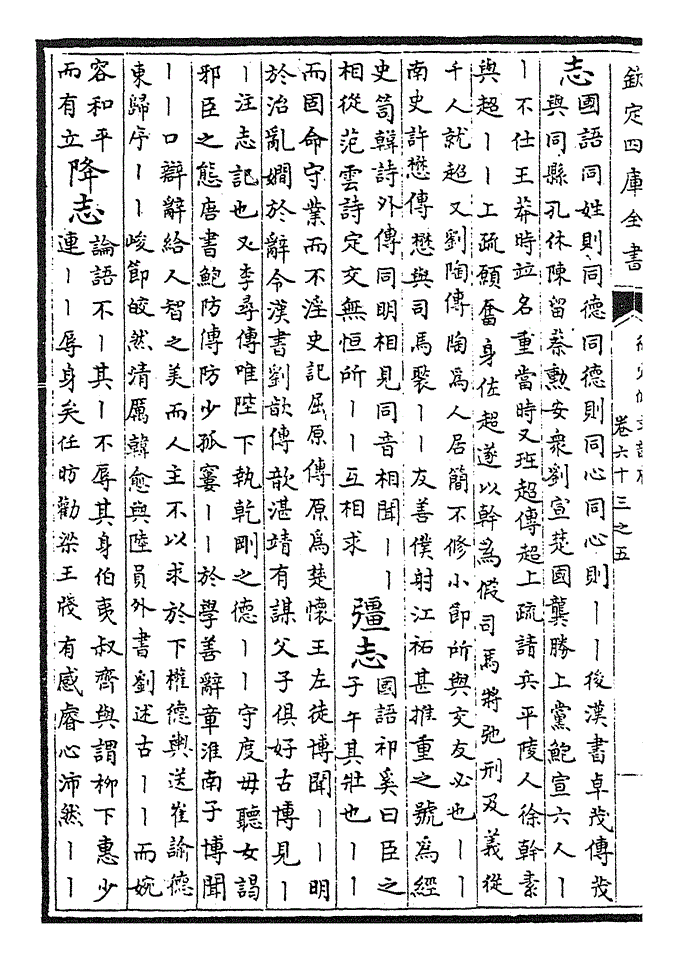 欽定四庫全書
卷六十三之五
志
國語同姓則同德同德則同心同心則丨丨後漢書卓茂傳茂
與同縣孔休陳留蔡勳安衆劉宣楚國龔勝上黨鮑宣六人丨
丨不仕王莽時竝名重當時又班超傳超上疏請兵平陵人徐幹素
與超丨丨上疏願奮身佐超遂以幹為假司馬將弛刑及義從
千人就超又劉陶傳陶為人居簡不修小節所與交友必也丨丨
南史許懋傳懋與司馬褧丨丨友善僕射江祏甚推重之號為經
史笥韓詩外傳同明相見同音相聞丨丨
相從范雲詩定交無恒所丨丨互相求
彊志
國語祁奚曰臣之
子午其壯也丨丨
而固命守業而不淫史記屈原傳原為楚懷王左徒博聞丨丨明
於治亂嫺於辭令漢書劉歆傳歆湛靖有謀父子俱好古博見丨
丨注志記也又李尋傳唯陛下執乾剛之德丨丨守度毋聽女謁
邪臣之態唐書鮑防傳防少孤窶丨丨於學善辭章淮南子博聞
丨丨口辯辭給人智之美而人主不以求於下權德輿送崔諭德
東歸序丨丨峻節皎然清厲韓愈與陸員外書劉述古丨丨而婉
容和平
而有立
降志
論語不丨其丨不辱其身伯夷叔齊與謂柳下惠少
連丨丨辱身矣任昉勸梁王牋有感睿心沛然丨丨